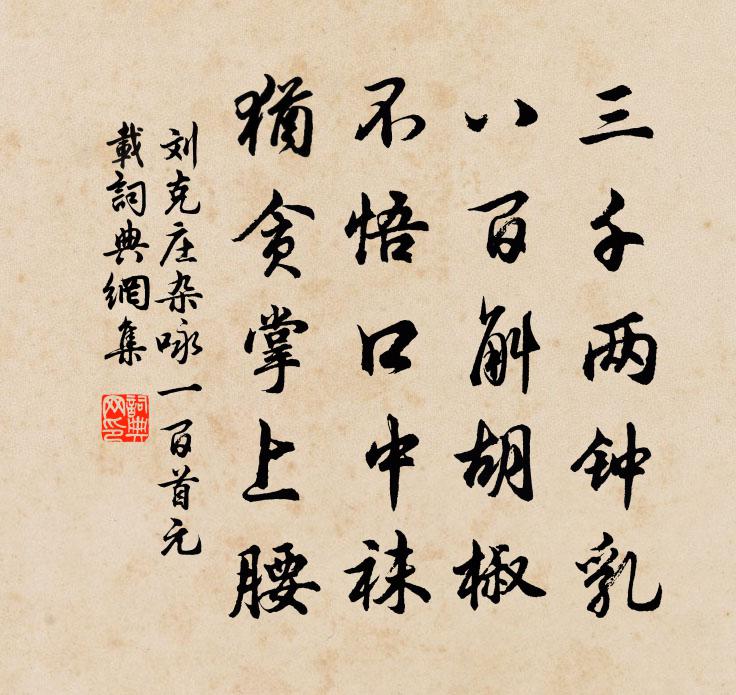 三千两钟乳
八百斛胡椒
不悟口中袜
犹贪掌上腰
刘克庄杂咏一百首元
載詞典網集
詞典网印